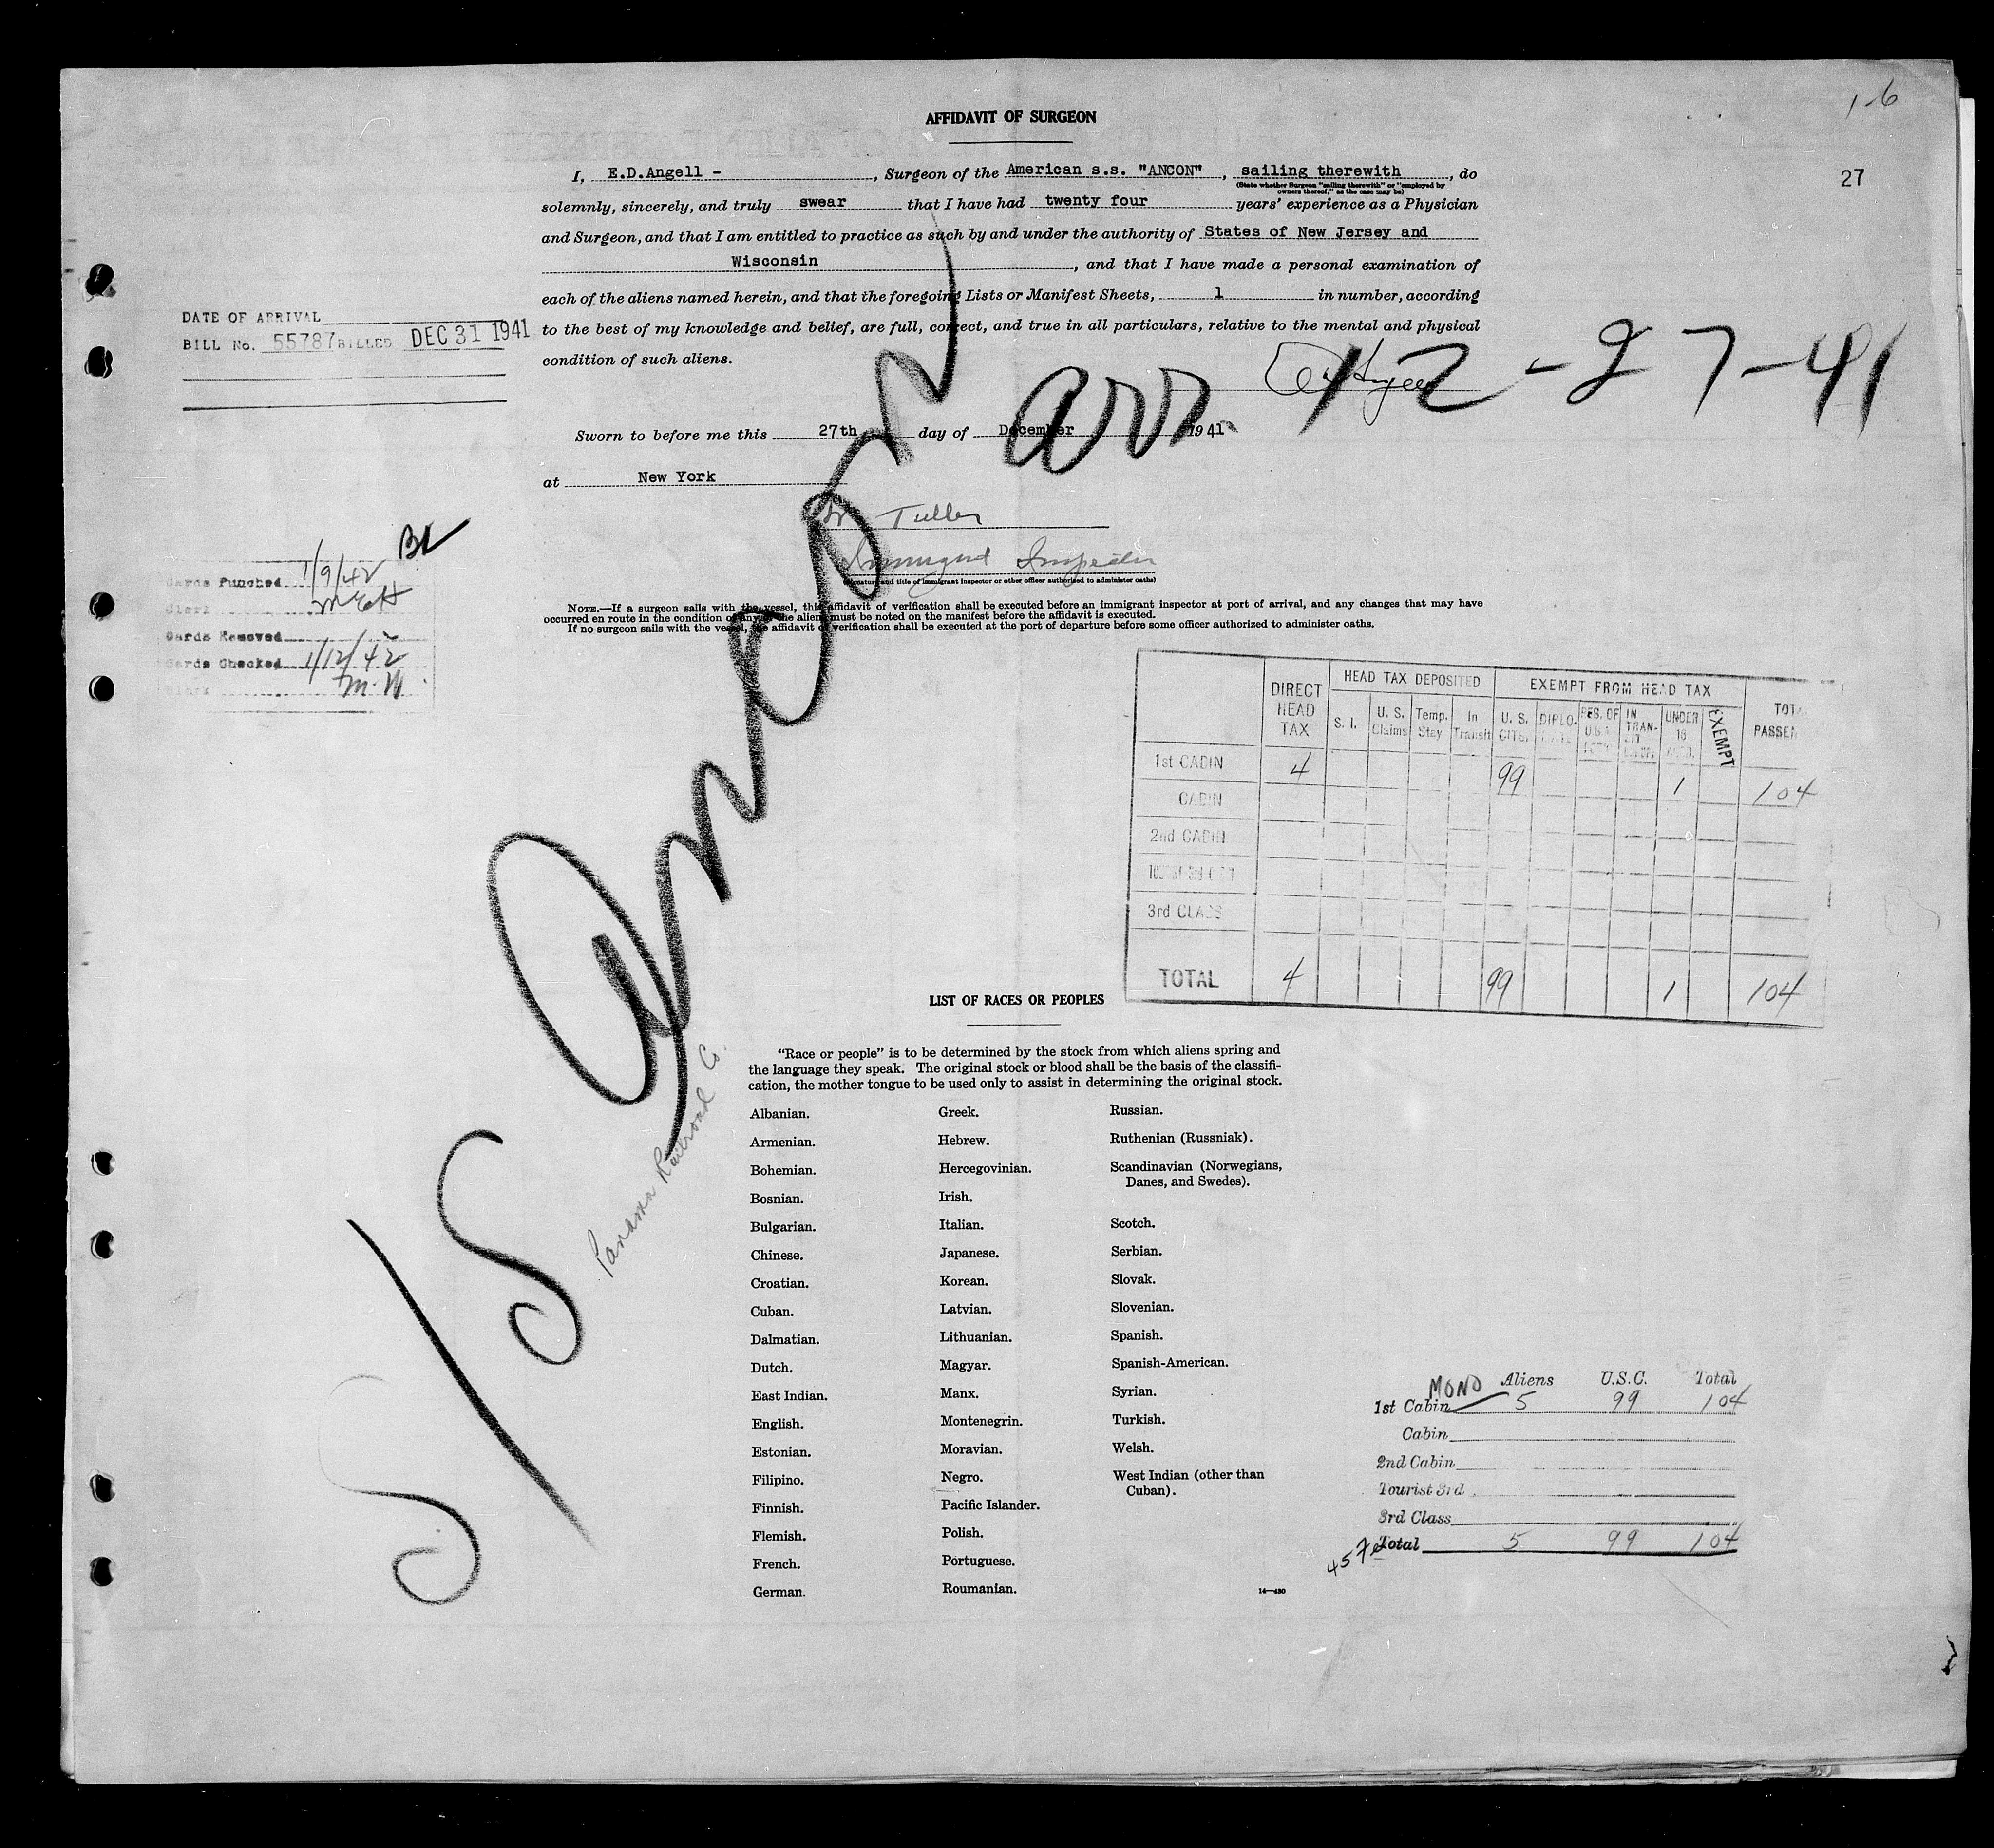 1-6
27
AFFIDAVIT OF SURGEON
I, E.D.Angell - , Surgeon of the American s.s. "ANCON" , sailing therewith , do
(State whether Surgeon "sailing therewith" or "employed by
owners thereof," as the case may be)
solemnly, sincerely, and truly swear that I have had twenty four years' experience as a Physician
and Surgeon, and that I am entitled to practice as such by and under the authority of States of New Jersey and
Wisconsin , and that I have made a personal examination of
each of the aliens named herein, and that the foregoing Lists or Manifest Sheets, 1 in number, according
to the best of my knowledge and belief, are full, correct, and true in all particulars, relative to the mental and physical
condition of such aliens.
DATE OF ARRIVAL
BILL No. 55787 BILLED DEC 31 1941
arr. 12-27-41
Sworn to before me this 27th day of December 1941
at New York
Tuller
Immigrant Inspector
(Signature and title of immigrant inspector or other officer authorized to administer oaths)
NOTE.—If a surgeon sails with the vessel, this affidavit of verification shall be executed before an immigrant inspector at port of arrival, and any changes that may have
occurred en route in the condition of any of the aliens must be noted on the manifest before the affidavit is executed.
If no surgeon sails with the vessel, the affidavit of verification shall be executed at the port of departure before some officer authorized to administer oaths.
Cards Punched 1/9/42
Clerk
Cards Removed
Cards Checked 1/12/42
Clerk M.W.
S/S Ancon
Panama Railroad Co.
HEAD TAX DEPOSITED EXEMPT FROM HEAD TAX
DIRECT HEAD TAX S. I. U. S. Claims Temp. Stay In Transit U. S. CITS. DIPLO- RES. OF U.S.A. IN TRAN- SIT UNDER 16 EXEMPT TOTA PASSEN
1st CABIN 4 99 1 104
CABIN
2nd CABIN
3rd CLASS
TOTAL 4 99 1 104
LIST OF RACES OR PEOPLES
"Race or people" is to be determined by the stock from which aliens spring and
the language they speak. The original stock or blood shall be the basis of the classifi-
cation, the mother tongue to be used only to assist in determining the original stock.
Albanian.
Armenian.
Bohemian.
Bosnian.
Bulgarian.
Chinese.
Croatian.
Cuban.
Dalmatian.
Dutch.
East Indian.
English.
Estonian.
Filipino.
Finnish.
Flemish.
French.
German.
Greek.
Hebrew.
Hercegovinian.
Irish.
Italian.
Japanese.
Korean.
Latvian.
Lithuanian.
Magyar.
Manx.
Montenegrin.
Moravian.
Negro.
Pacific Islander.
Polish.
Portuguese.
Roumanian.
Russian.
Ruthenian (Russniak).
Scandinavian (Norwegians,
Danes, and Swedes).
Scotch.
Serbian.
Slovak.
Slovenian.
Spanish.
Spanish-American.
Syrian.
Turkish.
Welsh.
West Indian (other than
Cuban).
14—430
MONO Aliens U.S.C. Total
1st Cabin 5 99 104
Cabin
2nd Cabin
Tourist 3rd
3rd Class
Total 5 99 104